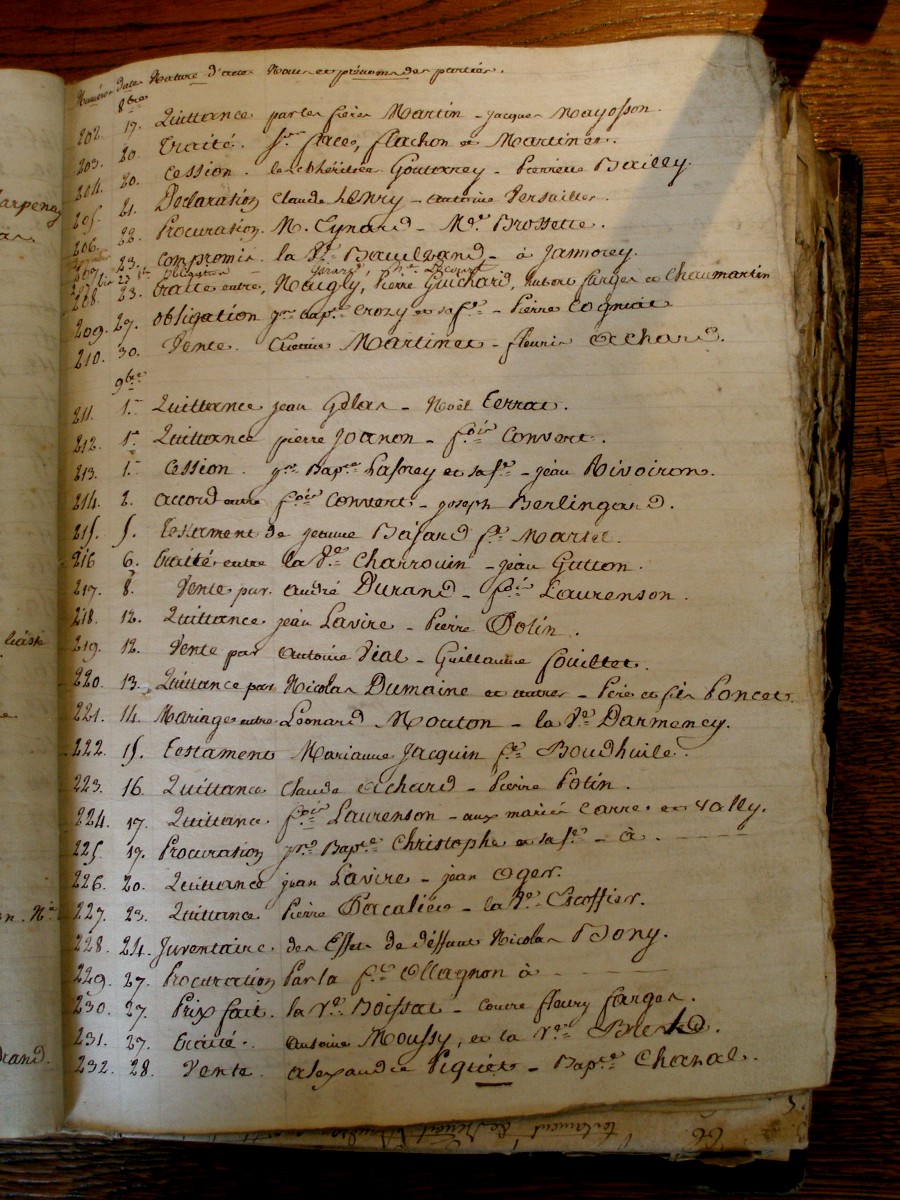 Numéros date Nature d'acte Noms et prénoms des parties.
8bre
202. 17. Quittance par les frères Martin - jacques Mayosson.
203. 20. Traité. Flachon et Martinet.
204. 20. Cession. Goutarrey - Pierrette Bailly.
205. 21. Déclaration Claude henry - antoine Versailles.
206. 22. Procuration. M. Eynard - Mde Brossette.
207. 23. Compromis. la Ve - à Jamorey.
208. 23. traité entre, Neugly, Pierre Guichard, hubert farges et Chaumartin
209. 27. obligation jn bapte Crozy et sa fe - Pierre Cogniat
210. 30. Vente. Martinet - fleurie Achard.
9bre
211. 1er Quittance jean Gelas - Noël Terrat.
212. 1er Quittance pierre Joanon - fçois Convert.
213. 1er Cession. jn Bapte Lafney et sa fe - jean Rivoiron.
214. 2. accord entre fçois Convert - joseph Berlingard.
215. 5. testament de jeanne Basard fe Martel.
216 6. traité entre la Ve Charrouin - jean Gutton.
217. 8. Vente par andré Durand - fçois Laurenson.
218. 12. Quittance jean Lavire - Pierre Potin.
219. 12. Vente par antoine Vial - Guillaume souillet.
220. 13. Quittance par Nicolas Dumaine et autres - Père et fils Poncet.
221. 14. Mariage entre Léonard Mouton - la Ve Darmency.
222. 15. testament Marianne Jacquin fe Boudhuile.
223. 16. Quittance Claude Achard - Pierre Potin.
224. 17. Quittance. fçois Laurenson - aux mariés Carre et vally.
225. 19. Procuration jn Bapte Christophe et sa fe - à
226. 20. Quittance jean Lavire - jean Oger.
227. 23. Quittance Pierre Pacalier - la Ve Escoffier.
228. 24. Inventaire des Effets de déffunt Nicolas Bony.
229. 27. Procuration Par la fe Ollagnon à
230. 27. Prix fait. la Ve Boissat - contre fleury farges.
231. 27. traité. antoine Moussy, et la Ve
232. 28. Vente alexandre Piquet - Bapte Chanal.